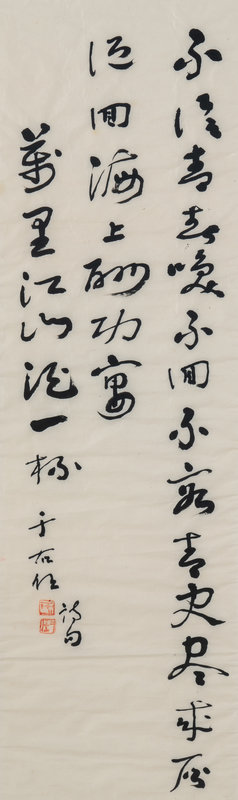 不信青春喚不回不容青史盡成灰
低回海上酬功宴
萬里江山酒一杯 于右任
詩句